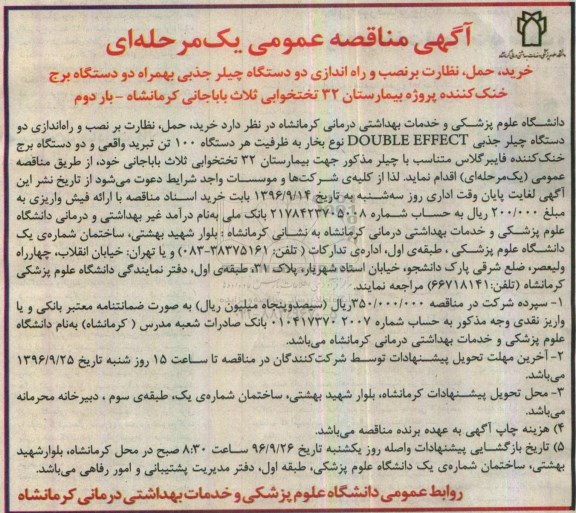 آگهی مناقصه عمومی یک‌مرحله‌ای
خرید، حمل، نظارت برنصب و راه اندازی دو دستگاه چیلر جذبی بهمراه دو دستگاه برج
خنک‌کننده پروژه بیمارستان ۳۲ تختخوابی ثلاث باباجانی کرمانشاه - بار دوم
دانشگاه علوم پزشکی و خدمات بهداشتی درمانی کرمانشاه در نظر دارد خرید، حمل، نظارت بر نصب و راه‌اندازی دو
دستگاه چیلر جذبی DOUBLE EFFECT نوع بخار به ظرفیت هر دستگاه ۱۰۰ تن تبرید واقعی و دو دستگاه برج
خنک‌کننده فایبرگلاس متناسب با چیلر مذکور جهت بیمارستان ۳۲ تختخوابی ثلاث باباجانی خود، از طریق مناقصه
عمومی (یک‌مرحله‌ای) اقدام نماید. لذا از کلیه‌ی شرکت‌ها و موسسات واجد شرایط دعوت می‌شود از تاریخ نشر این
آگهی لغایت پایان وقت اداری روز سه‌شنبه به تاریخ ۱۳۹۶/۹/۱۴ بابت خرید اسناد مناقصه با ارائه فیش واریزی به
مبلغ ۲۰۰/۰۰۰ ریال به حساب شماره ۲۱۷۸۴۲۳۷۰۵۰۰۸ بانک ملی به‌نام درآمد غیر بهداشتی و درمانی دانشگاه
علوم پزشکی و خدمات بهداشتی درمانی کرمانشاه به نشانی کرمانشاه : بلوار شهید بهشتی، ساختمان شماره‌ی یک
دانشگاه علوم پزشکی ، طبقه‌ی اول، اداره‌ی تدارکات ( تلفن: ۳۸۳۷۵۱۶۱-۰۸۳) و یا تهران: خیابان انقلاب، چهارراه
ولیعصر، ضلع شرقی پارک دانشجو، خیابان استاد شهریار، پلاک ۳۱، طبقه‌ی اول، دفتر نمایندگی دانشگاه علوم پزشکی
کرمانشاه (تلفن: ۶۶۷۱۸۱۴۱) مراجعه نمایند.
۱- سپرده شرکت در مناقصه ۳۵۰/۰۰۰/۰۰۰ریال (سیصدوپنجاه میلیون ریال) به صورت ضمانتنامه معتبر بانکی و یا
واریز نقدی وجه مذکور به حساب شماره ۰۱۰۴۱۷۳۷۰۲۰۰۷ بانک صادرات شعبه مدرس ( کرمانشاه) به‌نام دانشگاه
علوم پزشکی و خدمات بهداشتی درمانی کرمانشاه می‌باشد.
۲- آخرین مهلت تحویل پیشنهادات توسط شرکت‌کنندگان در مناقصه تا ساعت ۱۵ روز شنبه تاریخ ۱۳۹۶/۹/۲۵
می‌باشد.
۳- محل تحویل پیشنهادات کرمانشاه، بلوار شهید بهشتی، ساختمان شماره‌ی یک، طبقه‌ی سوم ، دبیرخانه محرمانه
می‌باشد.
۴) هزینه چاپ آگهی به عهده برنده مناقصه می‌باشد.
۵) تاریخ بازگشایی پیشنهادات واصله روز یکشنبه تاریخ ۹۶/۹/۲۶ ساعت ۸:۳۰ صبح در محل کرمانشاه، بلوارشهید
بهشتی، ساختمان شماره‌ی یک دانشگاه علوم پزشکی، طبقه اول، دفتر مدیریت پشتیبانی و امور رفاهی می‌باشد.
روابط عمومی دانشگاه علوم پزشکی و خدمات بهداشتی درمانی کرمانشاه